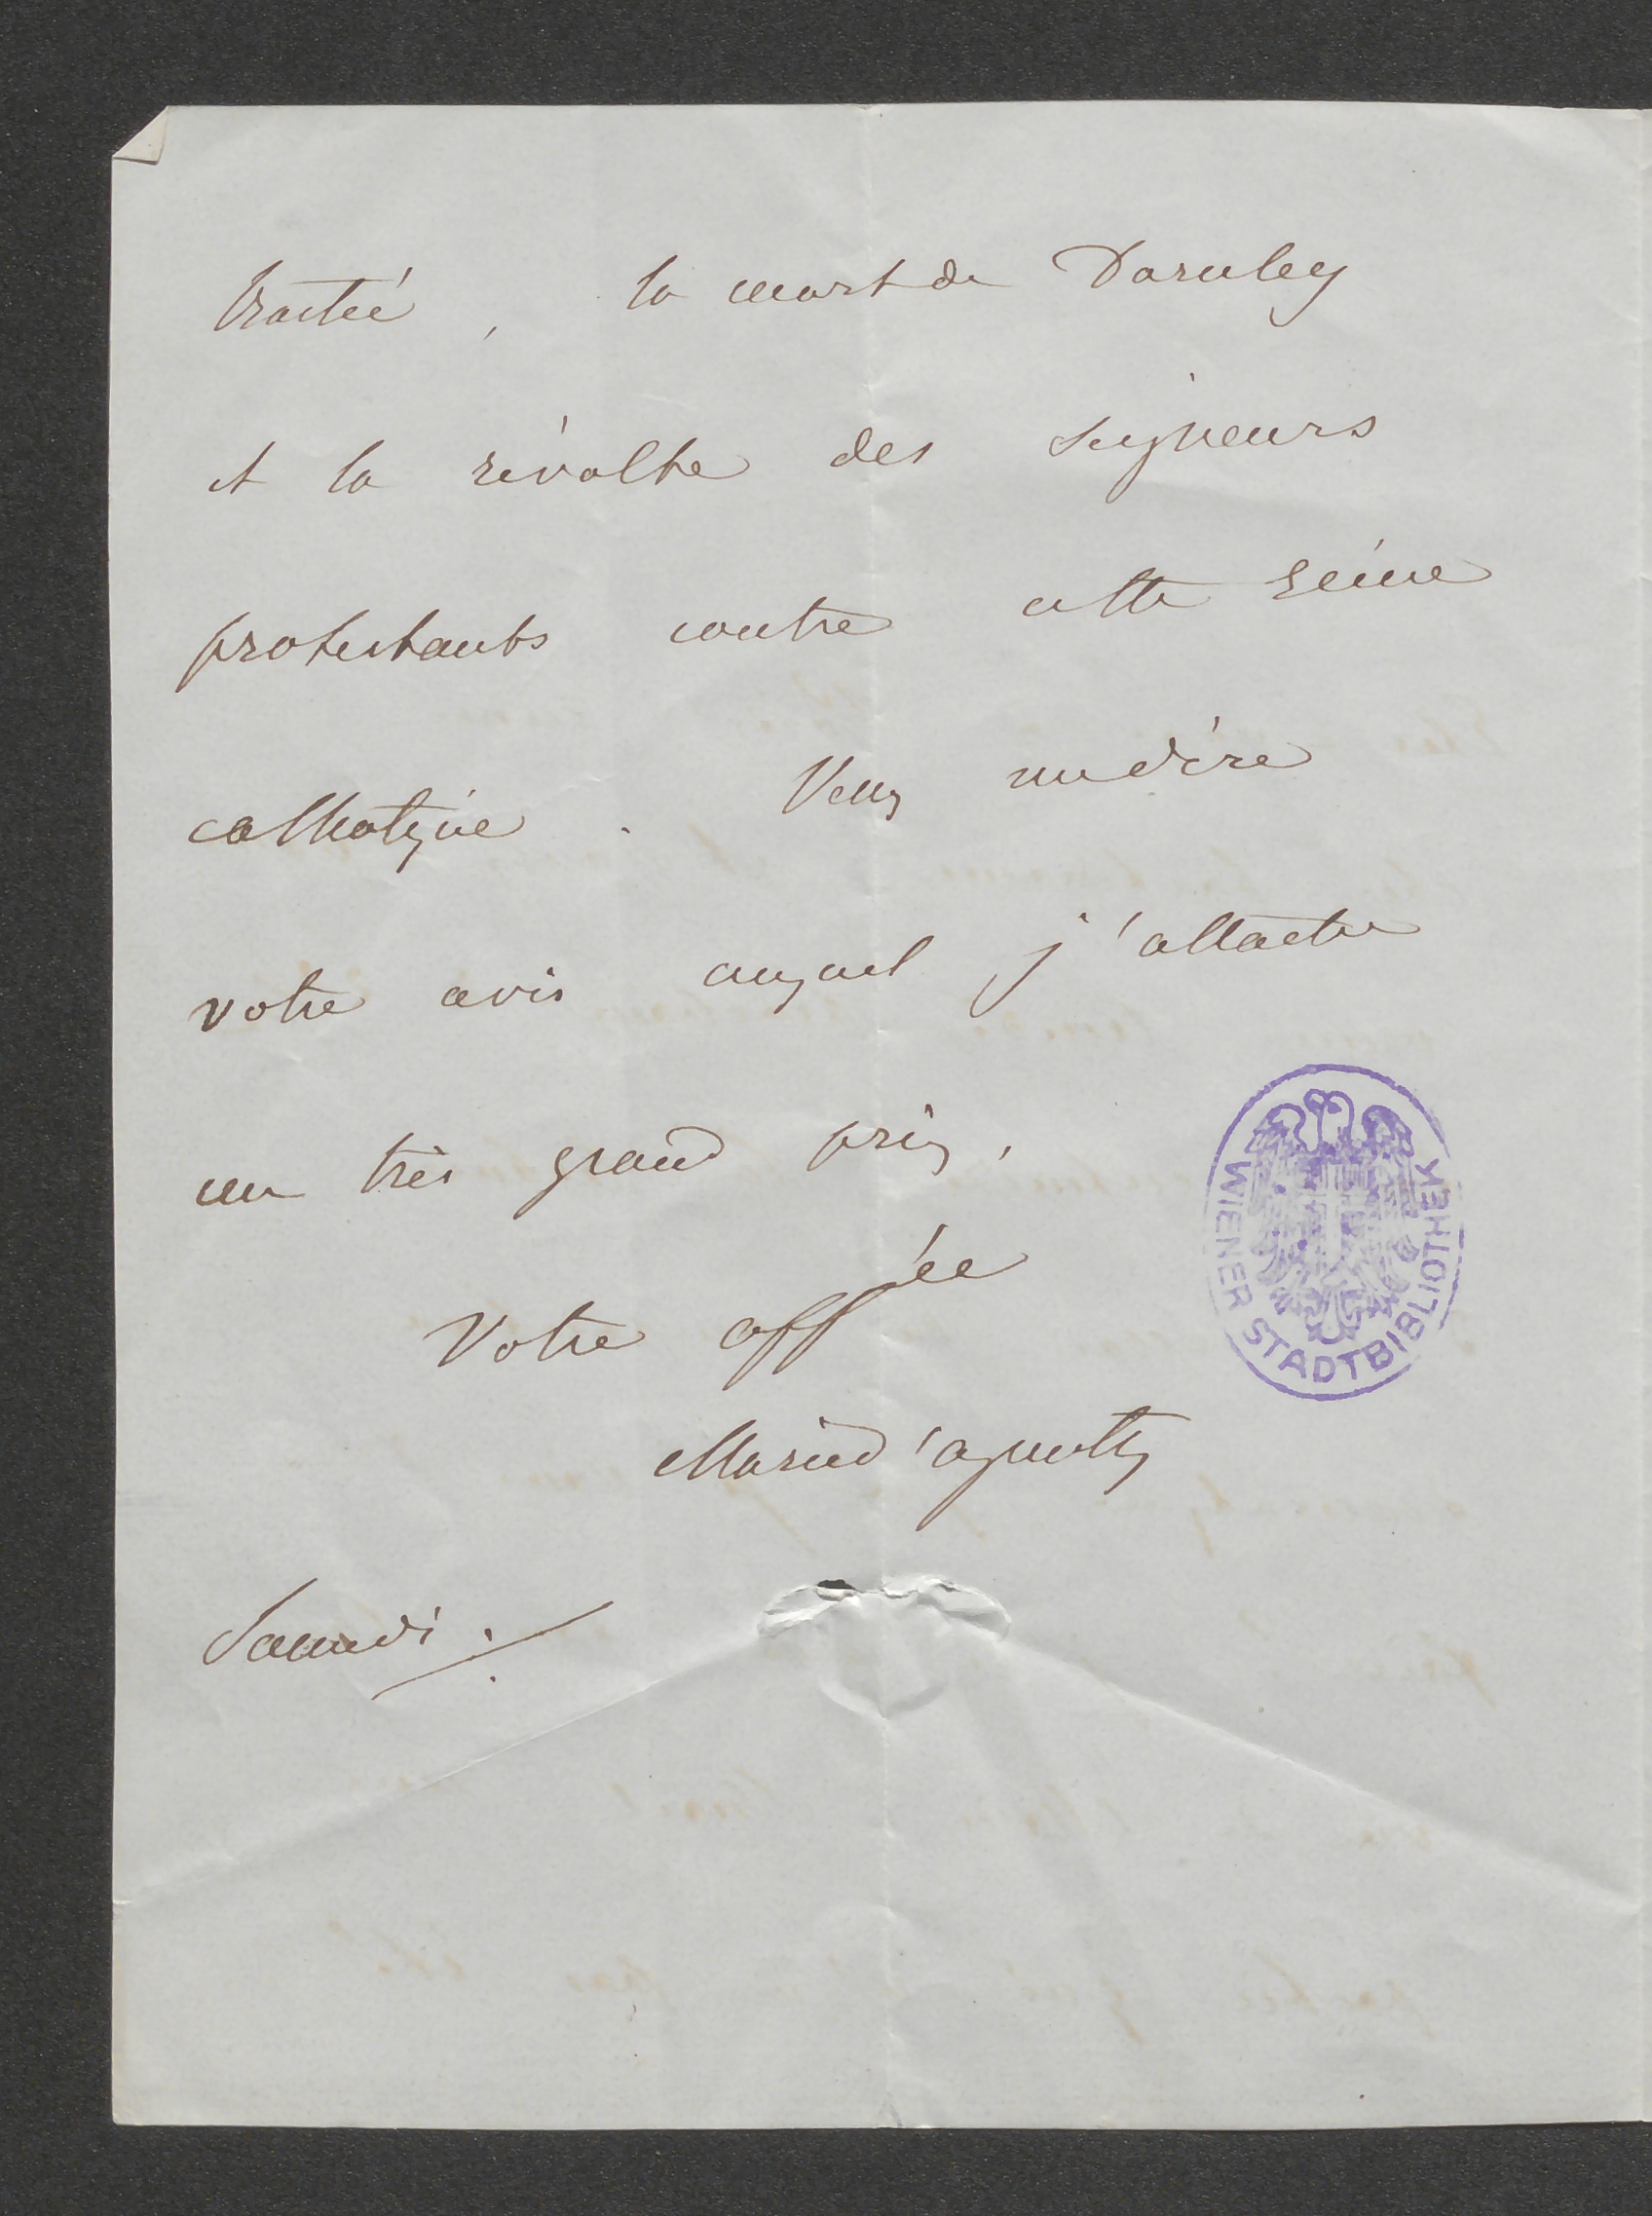 traité, la mort de Darnley
et la révolte des seigneurs
protestants contre cette reine
catholique. Venez me dire
votre avis auquel j'attache
un très grand prix,
Votre affée
Marie d'agoult
Samedi.
WIENER STADTBIBLIOTHEK